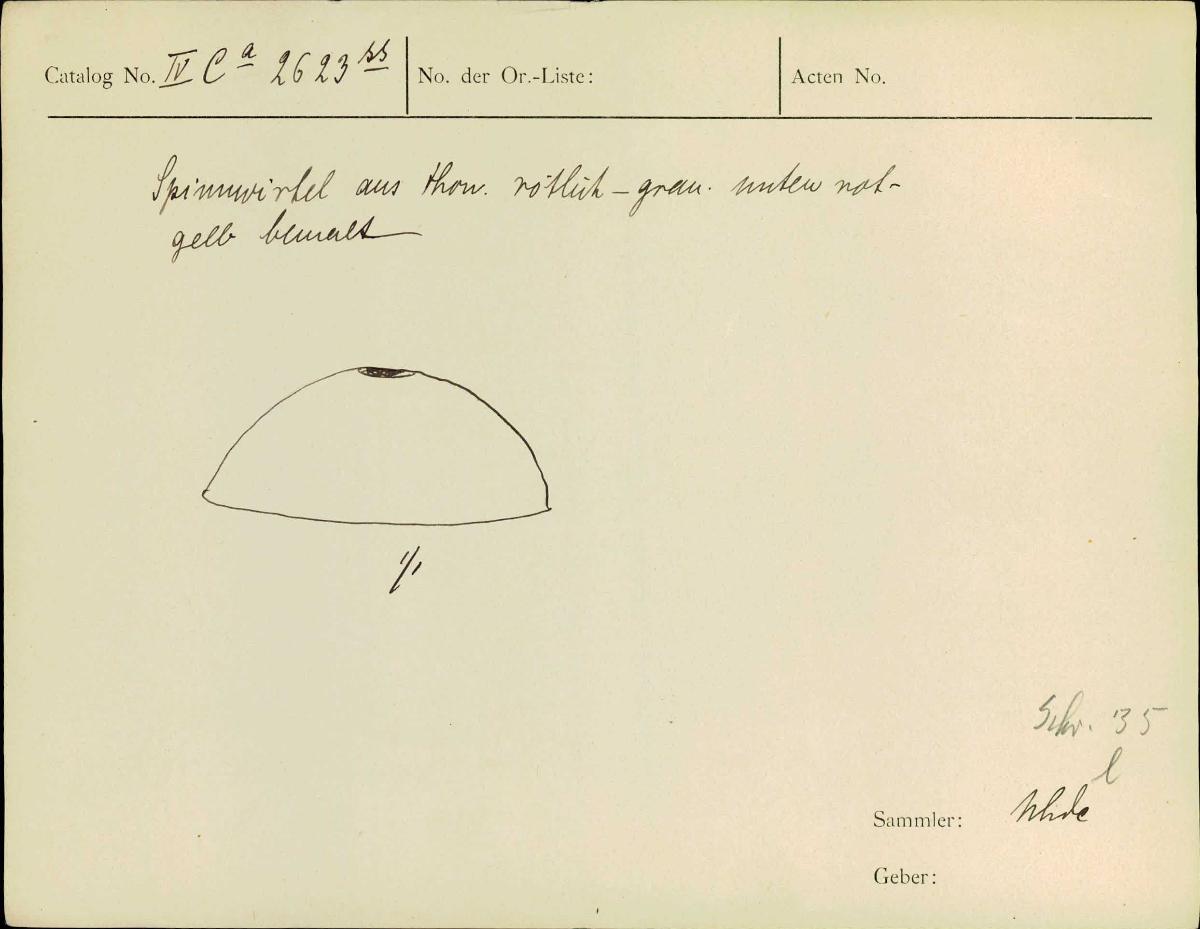 Catalog No. IV C a 2623 ss
No. der Or.-Liste:
Acten No.
Spinnwirtel aus Thon. rötlich-grau. unten rot-
gelb bemalt
1/1
Schr. 35
l
Sammler: Uhde
Geber: